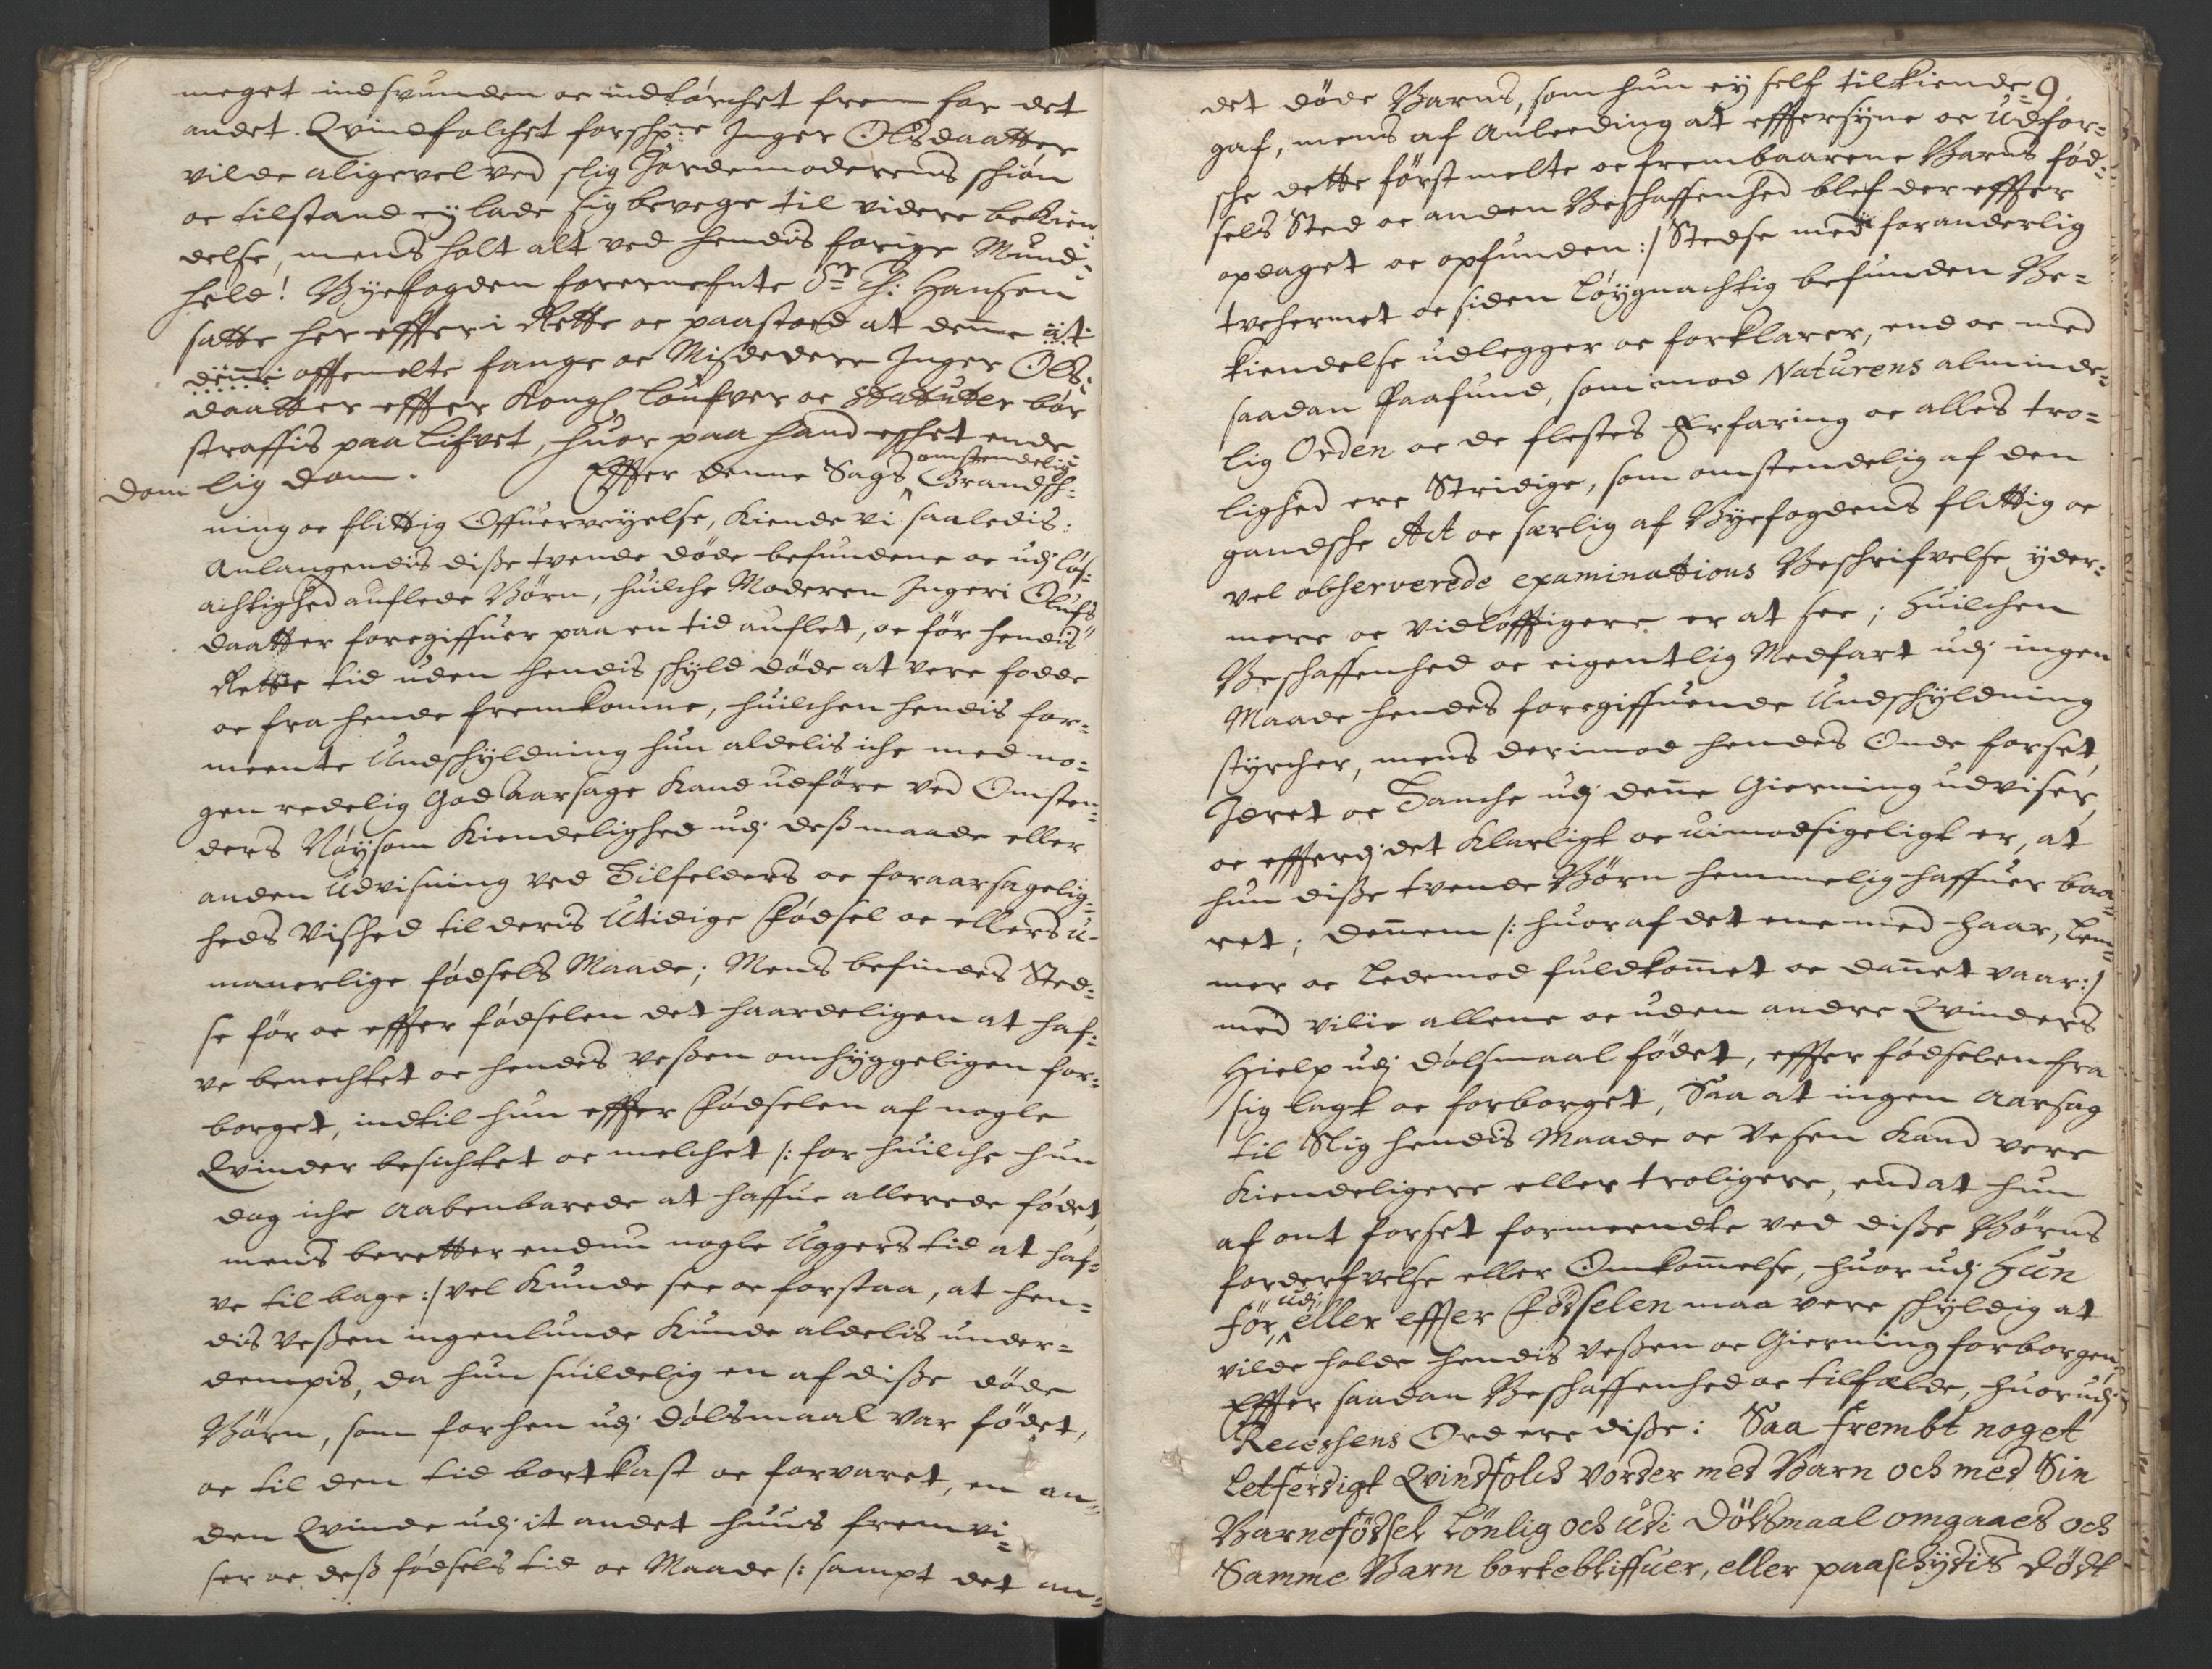 meget indsvunden oc indtórchet frem for det
andet. Qvindfolchet forschr:ne Inger Olsdaatter
vilde aligevel ved slig Jordemoderens schión
oc tilstand ey lade sig bevege til videre bekien-
delse, mens holt alt ved hendis forige Mund-
held! Byefogden forernefnte Sr Ch: Hansen
satte her effter i Rette oc paastoed at denne it
denne offtemelte fange oc Misdedere Inger Ols-
daatter effter Kongl loufver oc Statuter bór
straffis paa Lifvet, huor paa hand eschet ende-
Dom lig dom. Effter denne Sags omstendelig Grandsch-
ning oc flittig Offuerveyelse, Kiende vi saaledis:
Anlangendis diße tvende døde befundene oc udj lós-
achtighed auflede Børn, huilche Moderen Ingeri Olufs
daatter foregiffuer paa en tid auflet, oc før hendis
Rette tid uden hendis schyld døde at vere fodde
oc fra hende fremkomne, huilchen hendis for-
meente Undschyldning hun aldelis iche med no-
gen redelig God aarsage Kand udføre ved Omsten-
ders Nóysom Kiendelighed udj deß maade eller
anden Udvisning ved Tilfelders oc foraarsagelig-
heds Vished til deris Utidige Fødsel oc ellers u-
manerlige fødsels Maade; Mens befindes Sted-
se før oc effter fødselen det haardeligen at haf-
ve benechtet oc hendes veßen omhyggeligen for-
borget, indtil hun effter Fødselen af nogle
Qvinder besichtet oc melchet /: for huilche hun
dog iche Aabenbarede at haffue allerede født,
mens beretter endnu nogle Uggers tid at haf-
ve tilbage :/ vel Kunde see oc forstaa, at hen-
dis Veßen ingenlunde Kunde aldelis under-
dempis, da hun suildelig en af diße døde
Børn, som forhen udj dólsmaal var født,
oc til den tid bortkast oc forvaret, en an-
den Qvinde udj it andet huus fremvi-
ser oc deß fødsels tid oc Maade /: sampt det an-
9.
det døde Barns, som hun ey self tilkiende-
gaf, mens af Anleeding at efftersyne oc Udfor-
sche dette først melte oc frembaarene Barns fød-
sels Sted oc anden Beschaffenhed blef der effter
opdaget oc opfunden :/ Stedse med foranderlig
tvehermet oc siden Lóygnachtig befunden Be-
kiendelse udlegger oc forklarer, end oc med
saadan Paafund, som imod Naturens alminde-
lig Orden oc de flestes Erfaring oc alles tro-
lighed ere Stridige, som omstendelig af den
gandsche Act oc særlig af Byefogdens flittig oc
vel observerede examinations Beschrifvelse yder-
mere oc vidlófftigere er at see; Huilchen
Beschaffenhed oc eigentlig Medfart udj ingen
Maade hendes foregiffuende Undschyldning
styrcher, mens derimod hendes Onde forset,
Idret oc Tanche udj denne Gierning udviser,
oc efferdj det Klarligt oc uimodsigeligt er, at
hun diße tvende Børn hemmelig haffuer baa-
ret; dennem /: huoraf det ene med Haar, Lem-
mer oc Ledemod fuldkommet oc dannet vaar :/
med vilie allene oc uden andre Qvinders
Hielp udj dólsmaal fødet, effter fødselen fra
sig lagt oc forborget, Saa at ingen Aarsag
til Slig hendis Maade oc Vesen Kand vere
Kiendeligere eller troligere, end at hun
af ont forset formeendte ved diße Børns
forderfvelse eller Omkommelse, huor udj Hun
før, udj eller effter Fødselen maa vere schyldig at
vilde holde hendis veßen oc Gierning forborgen,
Effter saadan Beschaffenhed oc tilfælde, huorudj
Recessens Ord ere diße: Saa frembt noget
Letferdigt Qvindfolch vorder med Barn och med Sin
Barnefødsel Lønlig och udi Dølsmaal omgaaes och
Samme Barn bortebliffuer, eller paaschydis dødt